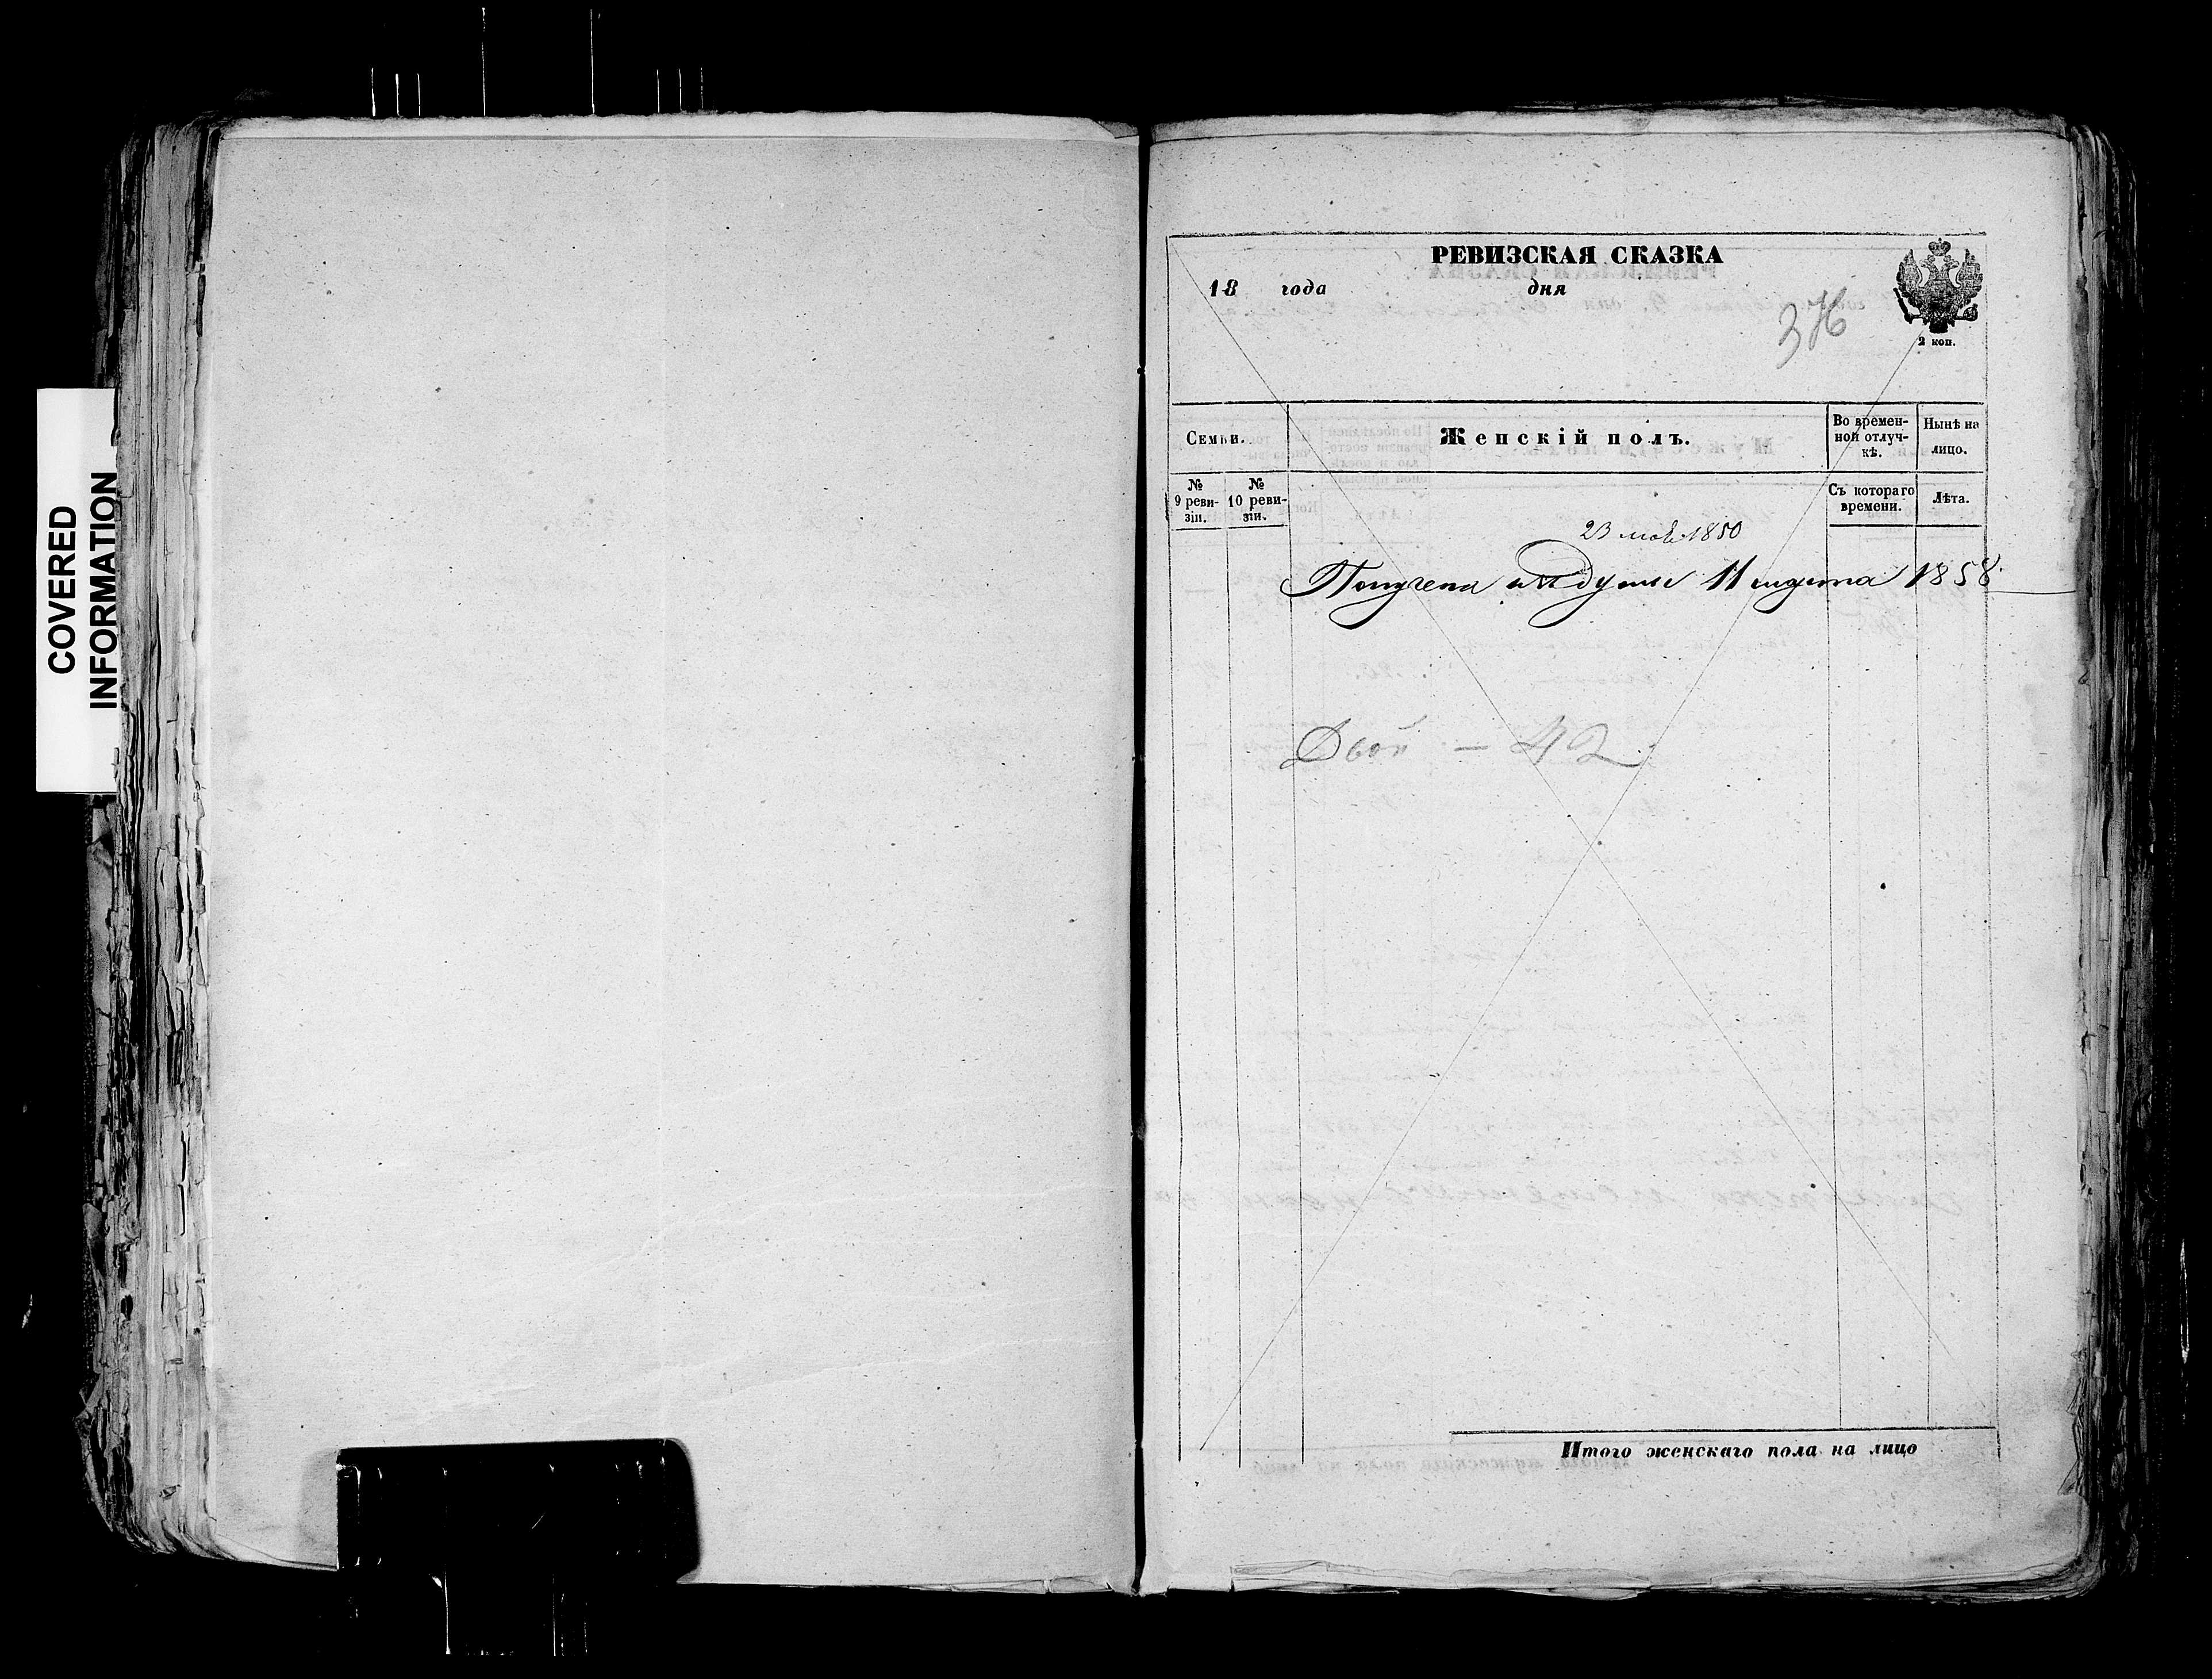 COVERED
INFORMATION
РЕВИЗСКАЯ СКАЗКА
18 года дня
376
2 коп.
Семьи.
Женскій полъ.
Во времен-
ной отлуч-
кѣ.
Нынѣ на
лицо.
№
9 реви-
зіи.
№
10 реви-
зіи.
Съ котораго
времени.
Лѣта.
23 1850
Получена 11 августа 1858
— 42
Итого женскаго пола на лицо